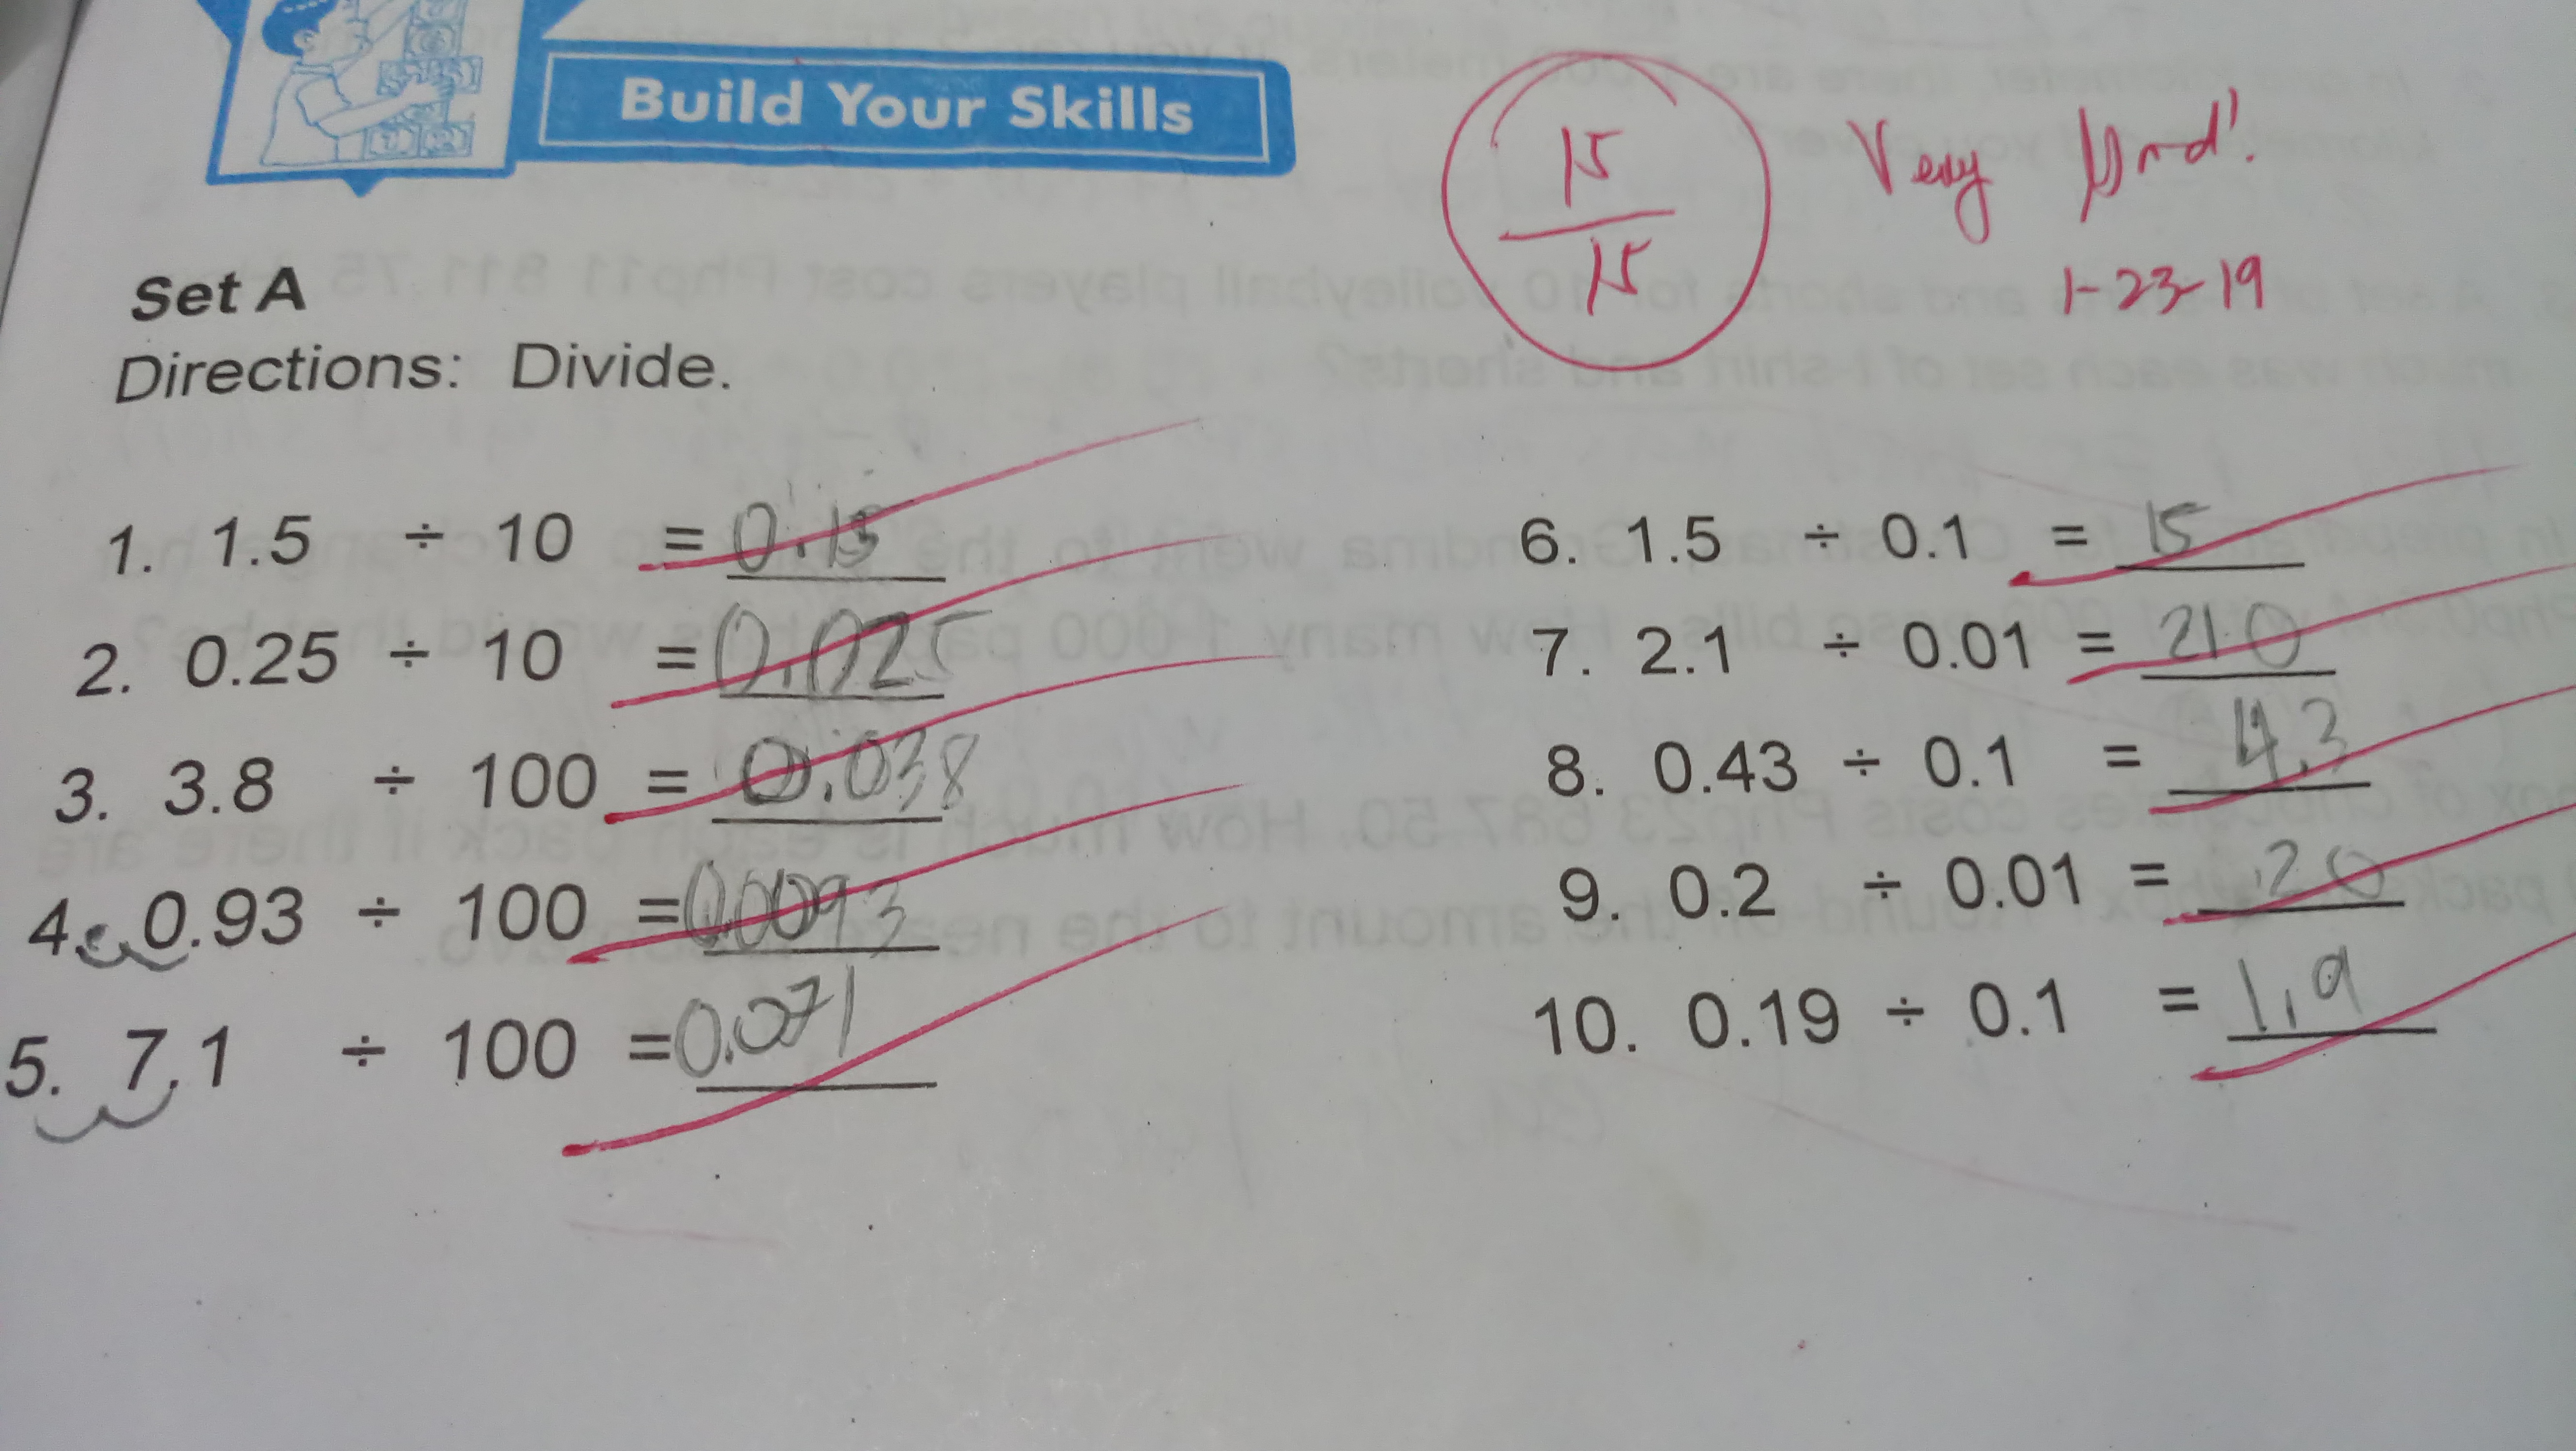 Build Your Skills
15
15
Very Good!
1-23-19
Set A
Directions: Divide.
1. 1.5 ÷ 10 = 0.15
2. 0.25 ÷ 10 = 0.025
3. 3.8 ÷ 100 = 0.038
4. 0.93 ÷ 100 = 0.0093
5. 7.1 ÷ 100 = 0.071
6. 1.5 ÷ 0.1 = 15
7. 2.1 ÷ 0.01 = 210
8. 0.43 ÷ 0.1 = 4.3
9. 0.2 ÷ 0.01 = 20
10. 0.19 ÷ 0.1 = 1.9